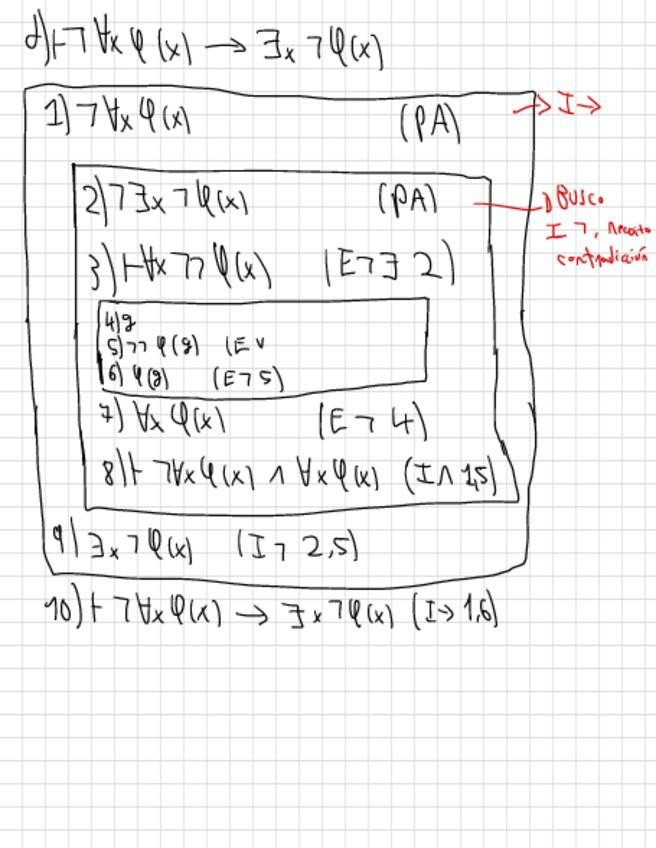 d) ⊢ ¬∀x φ(x) → ∃x ¬φ(x)
1) ¬∀x φ(x) (PA) → I→
2) ¬∃x ¬φ(x) (PA) → Busco
I ¬, necesito
contradicción
3) ⊢ ∀x ¬¬φ(x) (E¬∃ 2)
4) y
5) ¬¬φ(y) (E∀
6) φ(y) (E¬ 5)
7) ∀x φ(x) (E¬ 4)
8) ⊢ ¬∀x φ(x) ∧ ∀x φ(x) (I∧ 1,5)
9) ∃x ¬φ(x) (I¬ 2,5)
10) ⊢ ¬∀x φ(x) → ∃x ¬φ(x) (I→ 1,6)